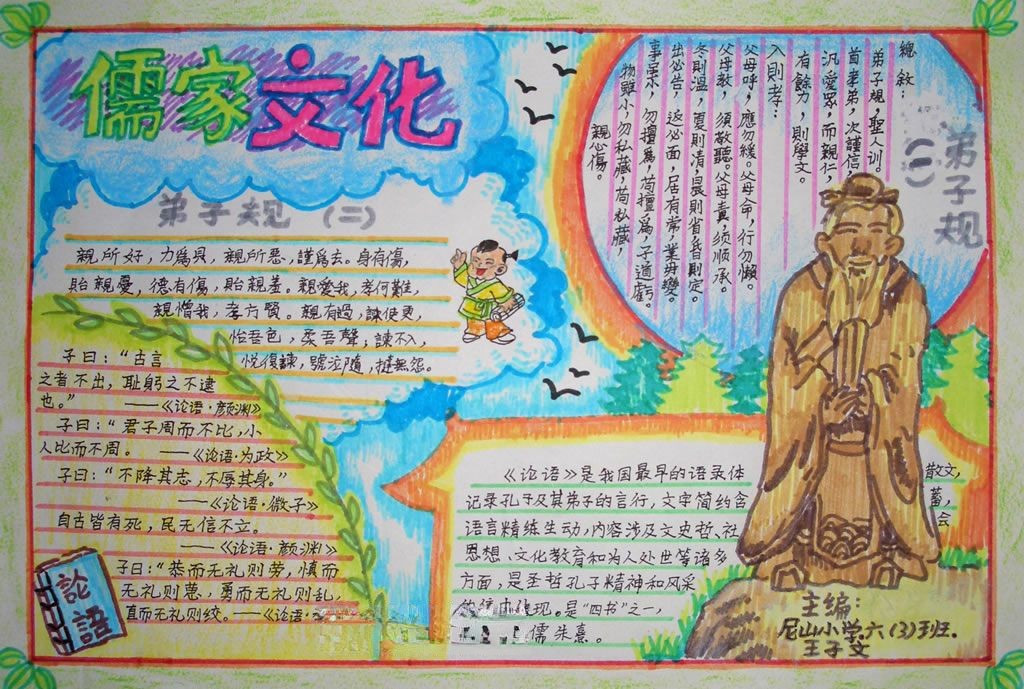 儒家文化
弟子规（二）
親所好，力爲具，親所惡，謹爲去。身有傷，
貽親憂，德有傷，貽親羞。親愛我，孝何難，
親憎我，孝方賢。親有過，諫使更，
怡吾色，柔吾聲，諫不入，
悅復諫，號泣隨，撻無怨。
子曰：“古言
之者不出，耻躬之不逮
也。” ——《论语·颜渊》
子曰：“君子周而不比，小
人比而不周。 ——《论语·为政》
子曰：“不降其志，不辱其身。”
——《论语·微子》
自古皆有死，民无信不立。
——《论语·颜渊》
子曰：“恭而无礼则劳，慎而
无礼则葸，勇而无礼则乱，
直而无礼则绞。——《论语·
論語
弟子规
（一）
總敘：
弟子規，聖人训。
首孝弟，次謹信，
汎愛眾，而親仁，
有餘力，則學文。
入則孝：
父母呼，應勿緩。父母命，行勿懒。
父母教，須敬聽。父母責，须顺承。
冬則溫，夏則清，晨則省，昏則定。
出必告，返必面，居有常，業毋變。
事雖小，勿擅爲，苟擅爲，子道虧。
物雖小，勿私藏，苟私藏，
親心傷。
《论语》是我国最早的语录体 散文，
记录孔子及其弟子的言行，文字简约含 蓄，
语言精练生动，内容涉及文史哲、社 会
思想、文化教育和为人处世等诸多
方面，是圣哲孔子精神和风采
现。是“四书”之一，
儒朱熹。
主编：
尼山小学.六（3）班.
王子文